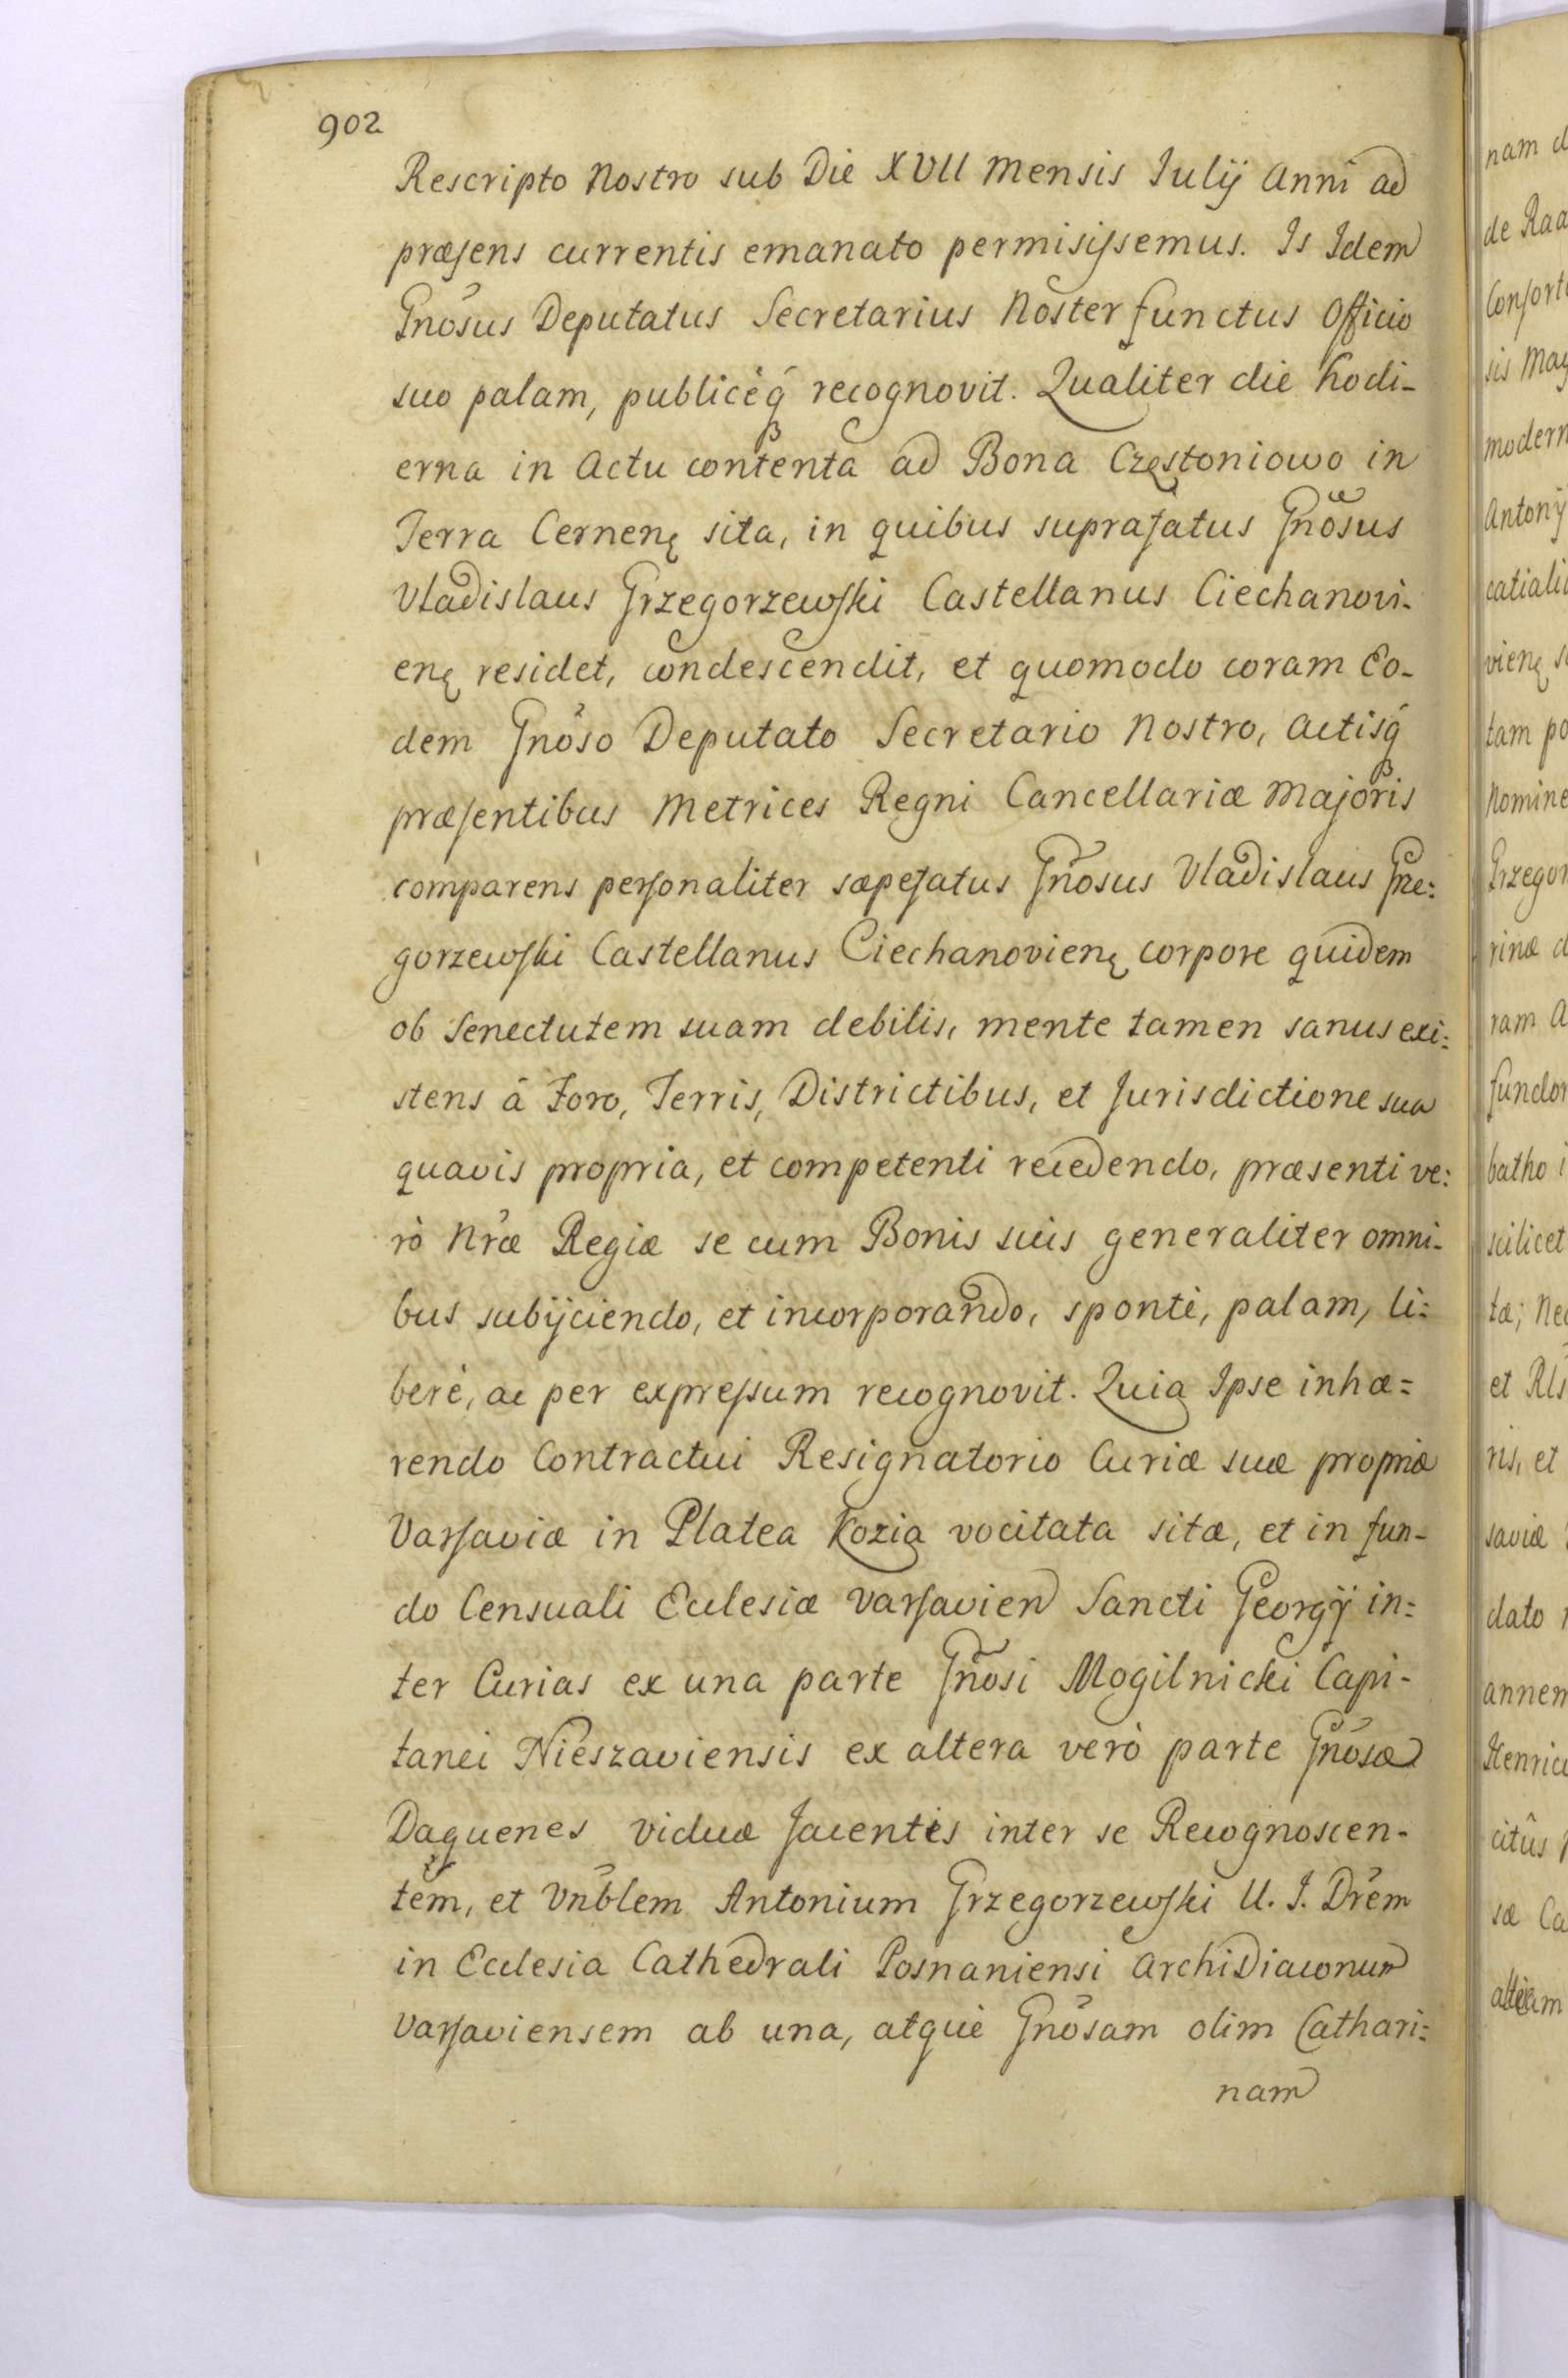 902
Rescripto Nostro sub Die XVII Mensis Iulij Anni ad
præsens currentis emanato permisissemus. Is Idem
Gnosus Deputatus Secretarius Noster functus Officio
suo palam, publiceq́ recognovit. Qualiter die hodi-
erna in Actu contenta ad Bona Częstoniowo in
Terra Cernenę sita, in quibus suprafatus Gnosus
Vladislaus Grzegorzewski Castellanus Ciechanovi-
enę residet, condescendit, et quomodo coram Eo-
dem Gnoso Deputato Secretario Nostro, Actisq́
præsentibus Metrices Regni Cancellariæ Majoris
comparens personaliter sæpefatus Gnosus Vladislaus Grze:
gorzewski Castellanus Ciechanovienę corpore quidem
ob Senectutem suam debilis, mente tamen sanus exi:
stens â Foro, Terris, Districtibus, et Jurisdictione sua
quavis propria, et competenti recedendo, præsenti ve:
rò Nræ Regiæ se cum Bonis suis generaliter omni-
bus subijciendo, et incorporando, spontè, palam, li:
berè, ac per expressum recognovit. Quia Ipse inhæ=
rendo Contractui Resignatorio Curiæ suæ propriæ
Varsaviæ in Platea Kozia vocitata sitæ, et in fun-
do Censuali Ecclesiæ Varsavien Sancti Georgij in=
ter Curias ex una parte Gnosi Mogilnicki Capi-
tanei Nieszaviensis ex altera verò parte Gnosæ
Daguenes viduæ Jacentis inter se Recognoscen-
tem, et Vnblem Antonium Grzegorzewski U. J. Drem
in Ecclesia Cathedrali Posnaniensi ArchiDiaconum
Varsaviensem ab una, atquè Gnosam olim Cathari:
nam
nam
de
sis
modern
Antonij
vienę
tam
Nomine
rinæ
ram
batho
scilicet
tæ;
et
ris, et
saviæ
dato
citûs
sæ